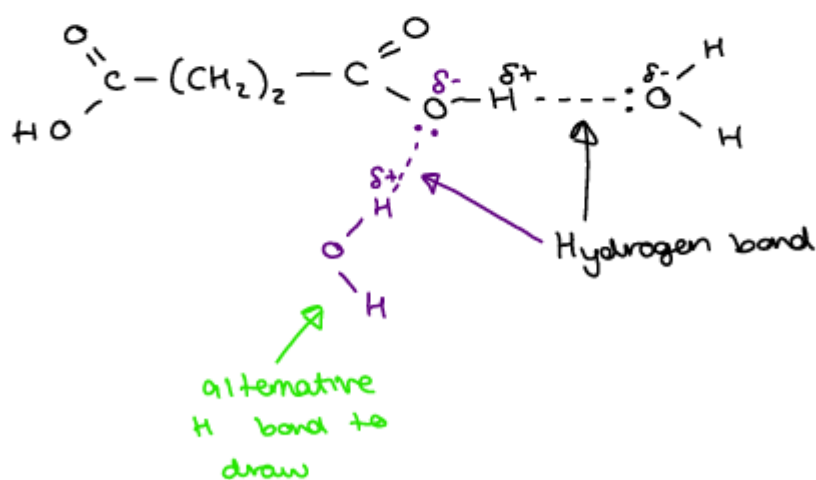 O O
C – (CH₂)₂ – C
HO
δ- δ+ δ-
O – H ------ :O
H
H
δ+
H
O
H
Hydrogen bond
alternative
H bond to
draw